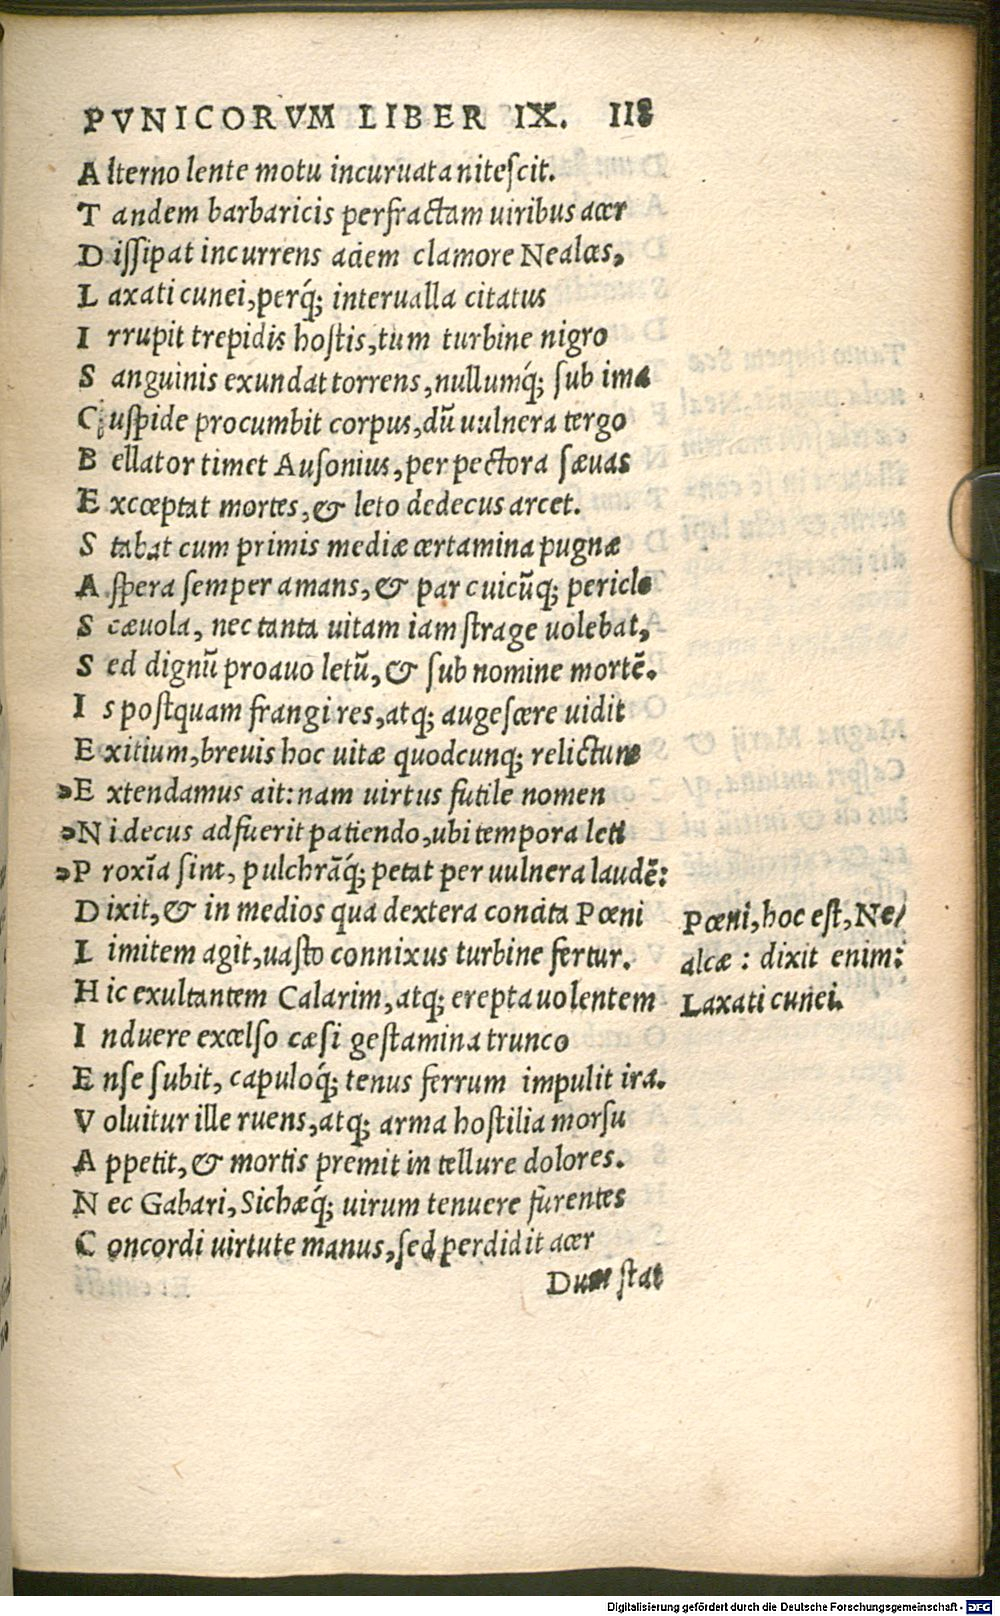 PVNICORVM LIBER IX. 118
Alterno lente motu incuruata nitescit.
Tandem barbaricis perfractam uiribus acer
Dissipat incurrens aciem clamore Nealces,
Laxati cunei, perq́; interualla citatus
Irrupit trepidis hostis, tum turbine nigro
Sanguinis exundat torrens, nullumq́; sub ima
Cuspide procumbit corpus, dū uulnera tergo
Bellator timet Ausonius, per pectora sæuas
Exceptat mortes, & leto dedecus arcet.
Stabat cum primis mediæ certamina pugnæ
Aspera semper amans, & par cuicūq; periclo
Scæuola, nec tanta uitam iam strage uolebat,
Sed dignū proauo letū, & sub nomine mortē.
Is postquam frangi res, atq; augescere uidit
Exitium, brevis hoc uitæ quodcunq; relictum
Extendamus ait: nam uirtus futile nomen
Ni decus adfuerit patiendo, ubi tempora leti
Proxīa sint, pulchrāq́; petat per uulnera laudē:
Dixit, & in medios qua dextera concita Pœni
Limitem agit, uasto connixus turbine fertur.
Hic exultantem Calarim, atq; erepta uolentem
Induere excelso cæsi gestamina trunco
Ense subit, capuloq́; tenus ferrum impulit ira.
Voluitur ille ruens, atq; arma hostilia morsu
Appetit, & mortis premit in tellure dolores.
Nec Gabari, Sichæq́; uirum tenuere furentes
Concordi uirtute manus, sed perdidit acer
Dum stat
Pœni, hoc est, Ne/
alcæ: dixit enim:
Laxati cunei.
Digitalisierung gefördert durch die Deutsche Forschungsgemeinschaft - DFG